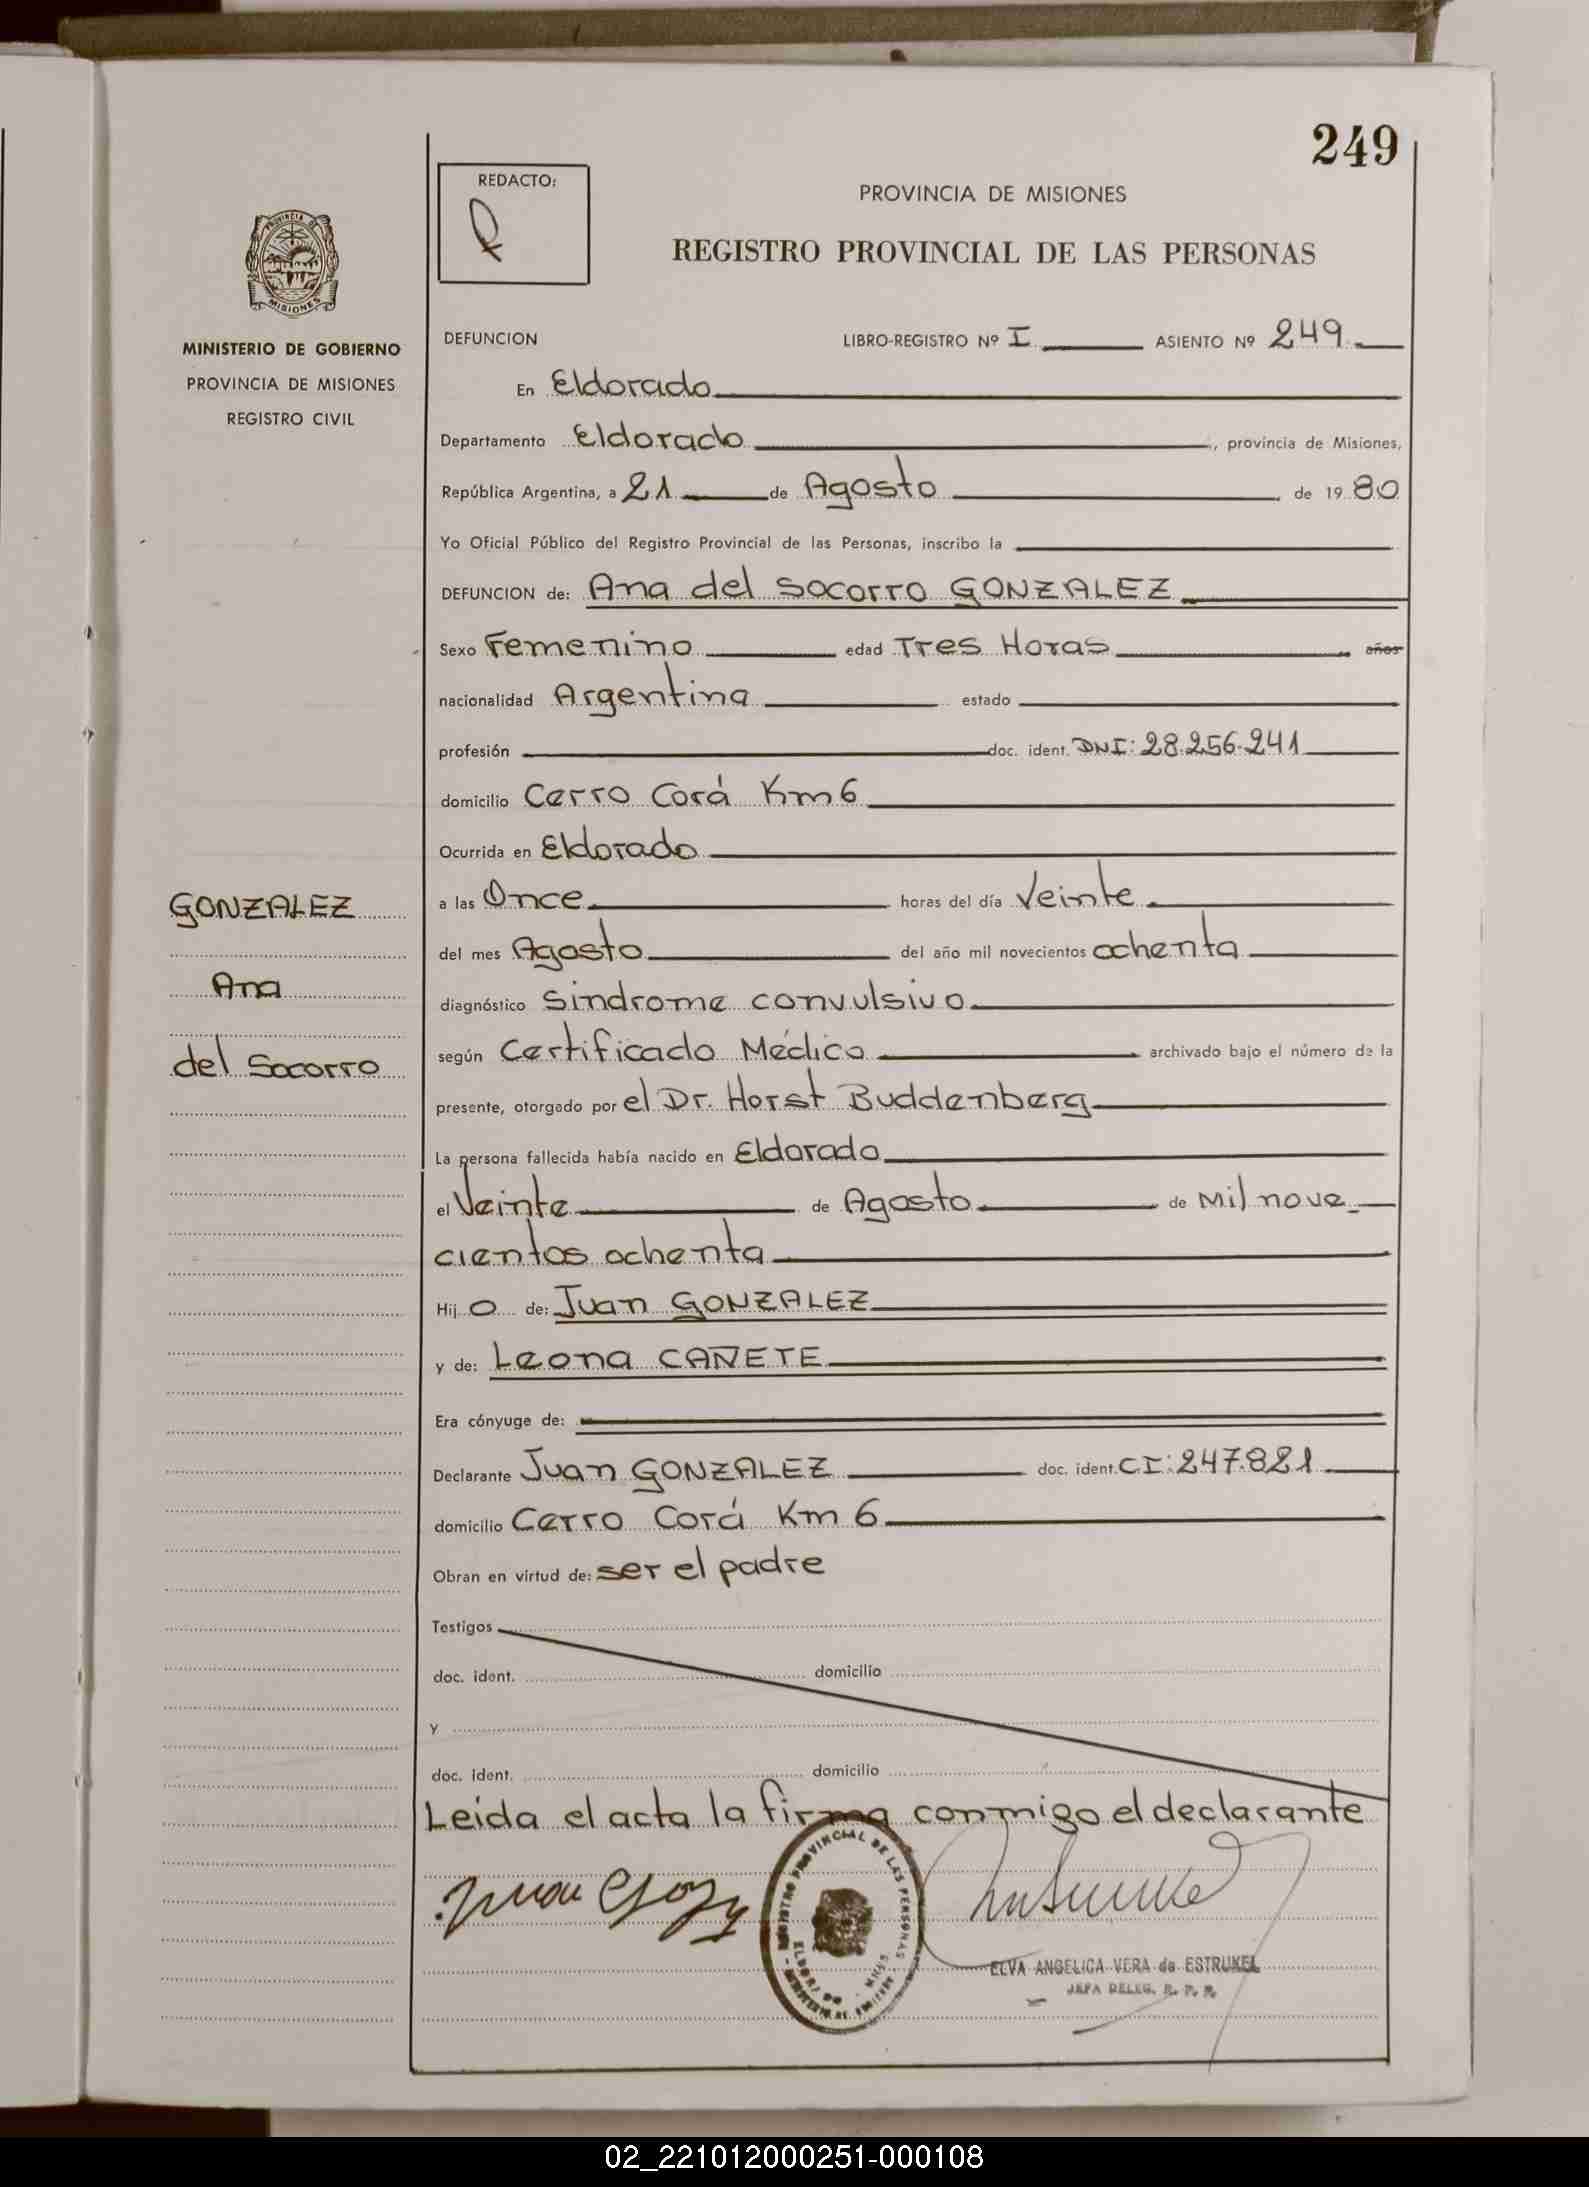 249
REDACTO:
PROVINCIA DE MISIONES
REGISTRO PROVINCIAL DE LAS PERSONAS
MISIONES
MINISTERIO DE GOBIERNO
PROVINCIA DE MISIONES
REGISTRO CIVIL
DEFUNCION LIBRO-REGISTRO Nº I ASIENTO Nº 249
En Eldorado
Departamento Eldorado, provincia de Misiones,
República Argentina, a 21 de Agosto de 19 80
Yo Oficial Público del Registro Provincial de las Personas, inscribo la
DEFUNCION de: Ana del Socorro GONZALEZ
Sexo Femenino edad Tres Horas años
nacionalidad Argentina estado
profesión doc. ident. DNI: 28.256.241
domicilio Cerro Corá Km 6
Ocurrida en Eldorado
a las Once horas del día Veinte
del mes Agosto del año mil novecientos ochenta
diagnóstico Sindrome convulsivo
según Certificado Médico archivado bajo el número de la
presente, otorgado por el Dr. Horst Buddenberg
La persona fallecida había nacido en Eldorado
el Veinte de Agosto de Mil nove
cientos ochenta
Hij o de: Juan GONZALEZ
y de: Leona CAÑETE
Era cónyuge de:
Declarante Juan GONZALEZ doc. ident. CI: 247.821
domicilio Cerro Corá Km 6
Obran en virtud de: ser el padre
Testigos
doc. ident. domicilio
y
doc. ident. domicilio
Leida el acta la firma conmigo el declarante
GONZALEZ
Ana
del Socorro
REGISTRO PROVINCIAL DE LAS PERSONAS
ELVA ANGELICA VERA de ESTRUKEL
JEFA DELEG. R. P. P.
02_221012000251-000108